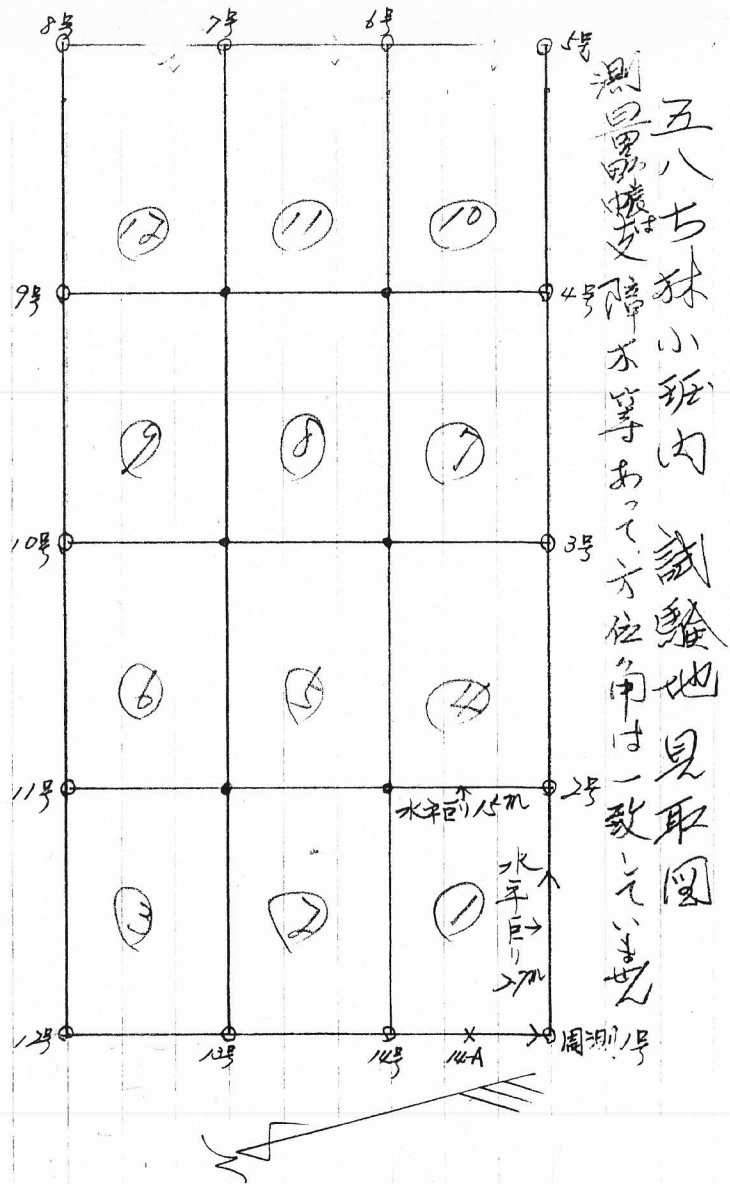 五八ち林小班内 試験地見取図
測量
は
支障木等あって方位角は一致していません
8号
7号
6号
5号
12
11
10
9号
4号
9
8
7
10号
3号
6
5
4
11号
2号
水平巨り15m
水平巨り27m
3
2
1
12号
13号
14号
14-A
周測1号